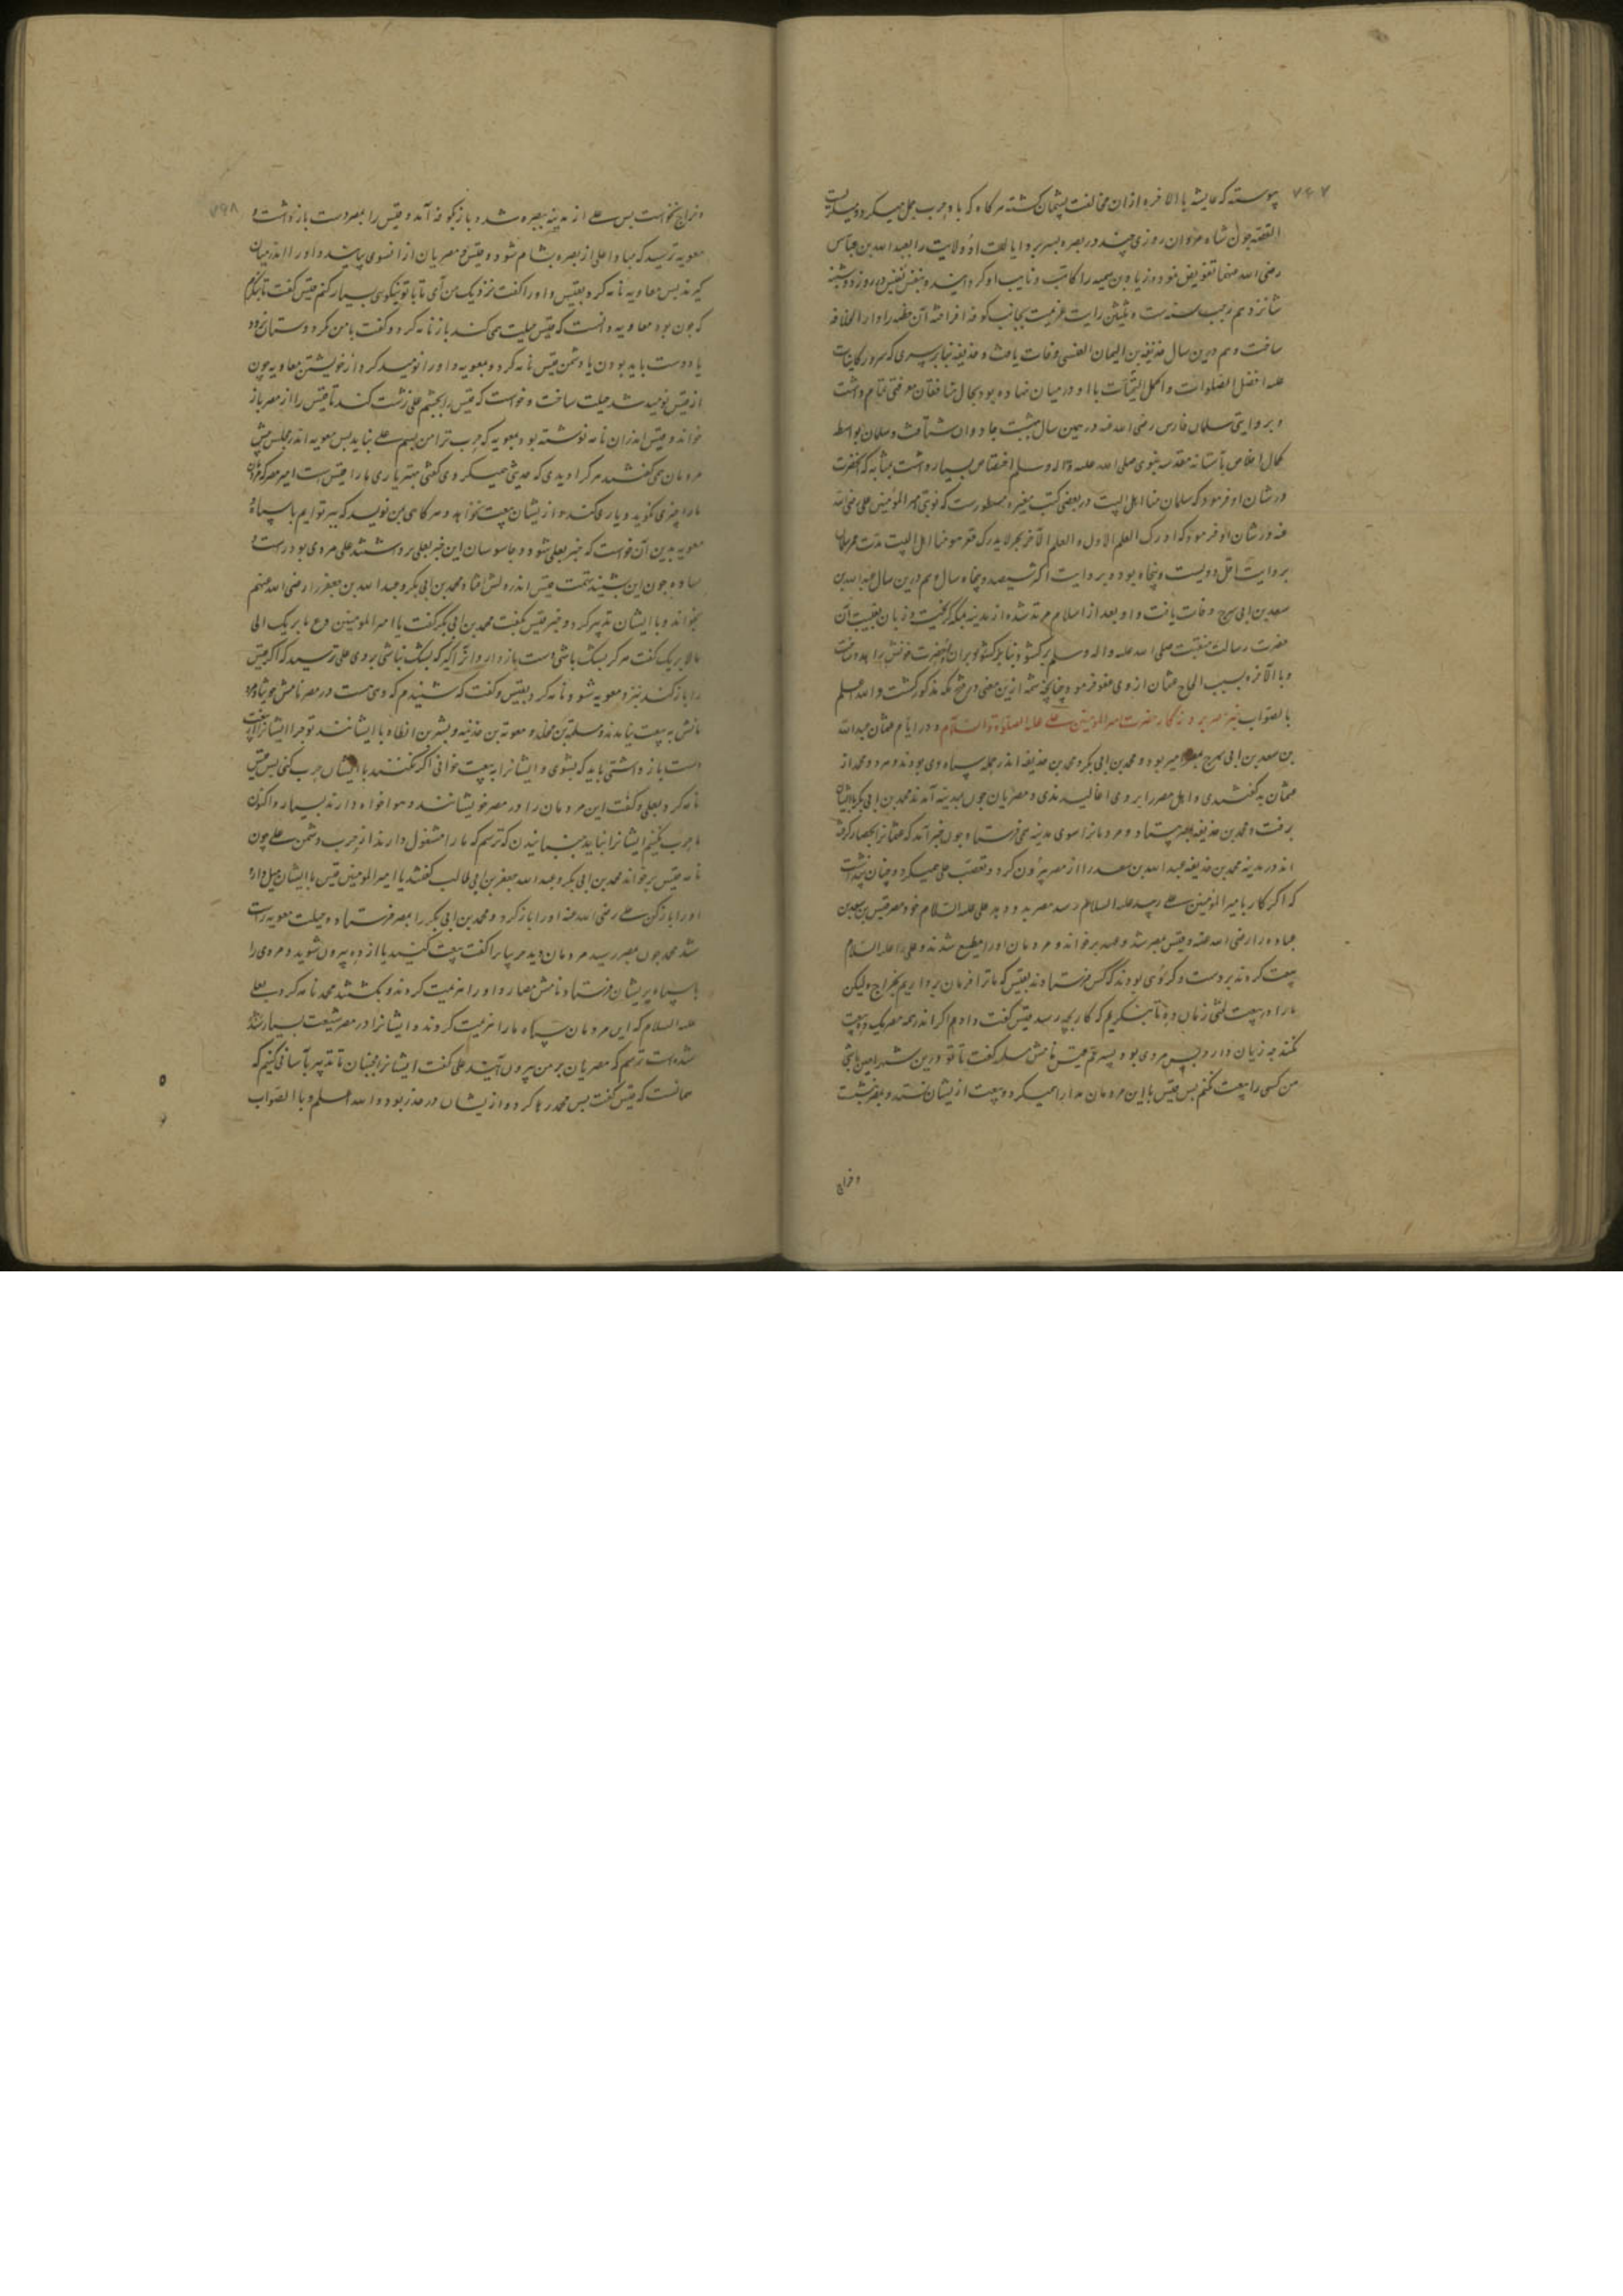 ۷۶۷
پیوسته که عایشه بالاخره ازان مخالفت پشیمان کشته هرکاه که یاد حرب جمل میکرد میکریست
القصه چون شاه مردان روزی چند در بصره بسر برد ایالت او ولایت را بعبدالله بن عباس
رضی الله عنهما تفویض نمود و زیاد بن سمیه را کاتب و نایب او کردانید و بنفس نفیس در روز دوشنبه
شانزدهم رجب سنه ست و ثلثین رایت عزیمت بجانب کوفه افراخته آن خطه را دار الخلافه
ساخت و هم درین سال حذیفه بن الیمان العنسی وفات یافت و حذیفه بنابر سری که سرور کاینات
علیه افضل الصلوات و اکمل التحیات با او در میان نهاده بود بحال منافقان معرفتی تمام داشت
و بروایتی سلمان فارسی رضی الله عنه در همین سال ببهشت جاودان شتافت و سلمان بواسطه
کمال اخلاص بآستانه مقدسه نبوی صلی الله علیه و اله وسلم اختصاص بسیار داشت بمثابه که آنحضرت
در شان او فرمود که سلمان منا اهل البیت در بعضی کتب معتبره مسطورست که نوبتی امیرالمومنین علی رضی الله
عنه در شان او فرمود که ادرک العلم الاول و العلم الآخر بحر لا یدرک قعره هو منا اهل البیت مدت عمر سلمان
بروایت اقل دویست و پنجاه بود و بروایت اکثر سیصد و پنجاه سال و هم درین سال عبدالله بن
سعد بن ابی سرح وفات یافت و او بعد از اسلام مرتد شده از مدینه بمکه کریخت و زبان بغیبت آن
حضرت رسالت منقبت صلی الله علیه واله وسلم برکشود بنابرکشود بران آنحضرت خونش را هدر ساخت
و بالاخره بسبب الحاح عثمان از وی عفو فرمود چنانچه شمه ازین معنی در فتح مکه مذکور کشت و الله اعلم
بالصواب خبر مصر بروزکار حضرت امیرالمومنین علی علیه الصلوة والسلام و در ایام عثمان عبدالله
بن سعد بن ابی سرح بمصر امیر بود و محمد بن ابی بکر و محمد بن حذیفه اندر جمله سپاه وی بودند و هر دو محمد از
عثمان بد کفتندی و اهل مصر را بر وی اغالیدندی و مصریان چون بمدینه آمدند محمد بن ابی بکر با ایشان
برفت و محمد بن حذیفه بمصر بیستاد و مردمانرا سوی مدینه همی فرستاد و چون خبر آمد که عثمانرا بحصار کرفته
اند در مدینه محمد بن حذیفه عبدالله بن سعد را از مصر بیرون کرد و تعصب علی همیکرد و چنان پنداشت
که اکر کار بامیرالمومنین علی رسد علیه السلام مصر بدو دهد علی علیه السلام خود مصر قیس بن سعد بن
عباده را رضی الله عنه و قیس بمصر شد و عهد برخواند و مردمان او را مطیع شدند و علی را علیه السلام
بیعت کردند بر دست و کروهی بودند که کس فرستادند بقیس که ما ترا فرمان برداریم بخراج ولیکن
ما را در بیعت لختی زمان ده تا بنکریم که کار بچه رسد قیس کفت دادم اکر اندر همه مصر یک ده بیعت
نکنند چه زیان دارد پس مردی بود پسر عم قیس نامش مسلمه کفت تا تو درین شهر امیر باشی
من کسی را بیعت نکنم پس قیس با این مردمان مدارا همیکرد و بیعت ازیشان نستد و بمصر بنشست
و خراج
۷۶۸
و خراج بخواست پس علی از مدینه ببصره شد و باز بکوفه آمد و قیس را بمصر دست باز داشت و
معویه ترسید که مبادا علی از بصره بشام شود و قیس و مصریان از انسوی بیایند و او را اندر میان
کیرند پس معاویه نامه کرد بقیس و او را کفت نزدیک من آی تا با تو نیکوی بسیار کنم قیس کفت تا بنکرم
که چون بود معاویه دانست که قیس حیلت همی کند باز نامه کرد و کفت با من مکر و دستان نرود
یا دوست باید بودن یا دشمن قیس نامه کرد و معویه و او را نومید کرد از خویشتن معاویه چون
از قیس نومید شد حیلت ساخت و خواست که قیس را بچشم علی زشت کند تا قیس را از مصر باز
خواند و قیس اندران نامه نوشته بود بمعویه که حرب ترا من بسم علی نباید پس معویه اندر مجلس پیش
مردمان همی کفت هرکرا دیدی که حدیثی همیکردی کفتی مهتر یاری ما را قیس است امیر مصر که مردمان
ما را چیزی نکوید و یاری کند و ازیشان بیعت نخواهد و هرکاهی بمن نویسد که بیر توایم با سپاه
معویه بدین آن خواست که خبر بعلی شود و جاسوسان این خبر بعلی برداشتند علی مردی بود راست و
ساده چون این بشنید تهمت قیس اندر دلش افتاد محمد بن ابی بکر و عبدالله بن جعفر را رضی الله عنهم
بخواند و با ایشان تدبیر کرد و خبر قیس بکفت محمد بن ابی بکر کفت یا امیرالمومنین دع ما یریبک الی
ما لا یریبک کفت هرکه بشک باشی دست بازدار و انرا کیر که بشک نباشی بر وی علی ترسید که اکر قیس
را باز کند نزد معویه شود نامه کرد بقیس و کفت که شنیدم که دهی هست در مصر نامش خربتا مردم
مانش به بیعت نیامدند و مسلمة بن مخلد و معویة بن حذیفه و بشر بن ارطاه با ایشانند تو چرا ایشانرا از بیعت
دست باز داشتی باید که بشوی و ایشانرا به بیعت خوانی اکر نکنند با ایشان حرب کنی پس قیس
نامه کرد بعلی و کفت این مردمان را در مصر خویشانند و هوا خواه دارند بسیار و اکنون
ما حرب نکنیم ایشانرا نباید جنبانیدن که ترسم که ما را مشغول دارند از حرب دشمن علی چون
نامه قیس برخواند محمد بن ابی بکر و عبدالله جعفر بن ابی طالب کفتند یا امیرالمومنین قیس با ایشان میل دارد
او را باز کن علی رضی الله عنه او را باز کرد و محمد بن ابی بکر را بمصر فرستاد و حیلت معویه راست
شد محمد چون بمصر رسید مردمان دیه خربتا را کفت بیعت کنید یا از ده بیرون شوید و مردی را
با سپاه بریشان فرستاد نامش مضار و او را هزیمت کردند و بکشتند محمد نامه کرد بعلی
علیه السلام که این مردمان سپاه ما را هزیمت کردند و ایشانرا در مصر شیعت بسیار شد
شده است ترسم که مصریان بر من بیرون آیند علی کفت ایشانرا مجنبان تا تدبیر بآسانی کنیم که
همانست که قیس کفت پس محمد رها کرد و ازیشان در حذر بود و الله اعلم و با الصواب